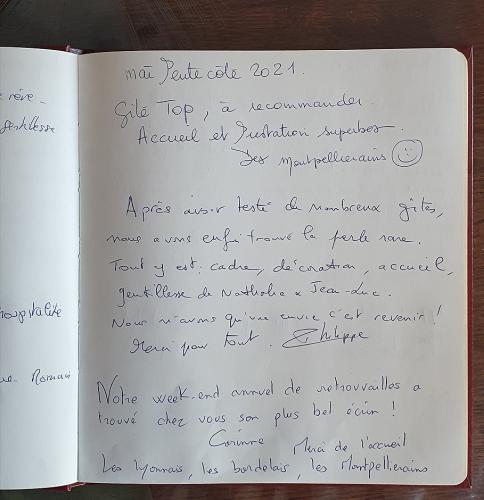 rêve -
gentillesse
hospitalité
Romain
mai Pentecôte 2021.
Gîte Top, à recommander.
Accueil et Prestation superbes.
Des Montpellierains ☺
Après avoir testé de nombreux gîtes,
nous avons enfin trouvé la perle rare.
Tout y est : cadre, décoration, accueil,
gentillesse de Nathalie & Jean-Luc.
Nous n'avons qu'une envie c'est revenir !
Merci pour tout. Philippe
Notre week-end annuel de retrouvailles a
trouvé chez vous son plus bel écrin !
Corinne
Merci de l'accueil
Les lyonnais, les bordelais, les Montpellierains